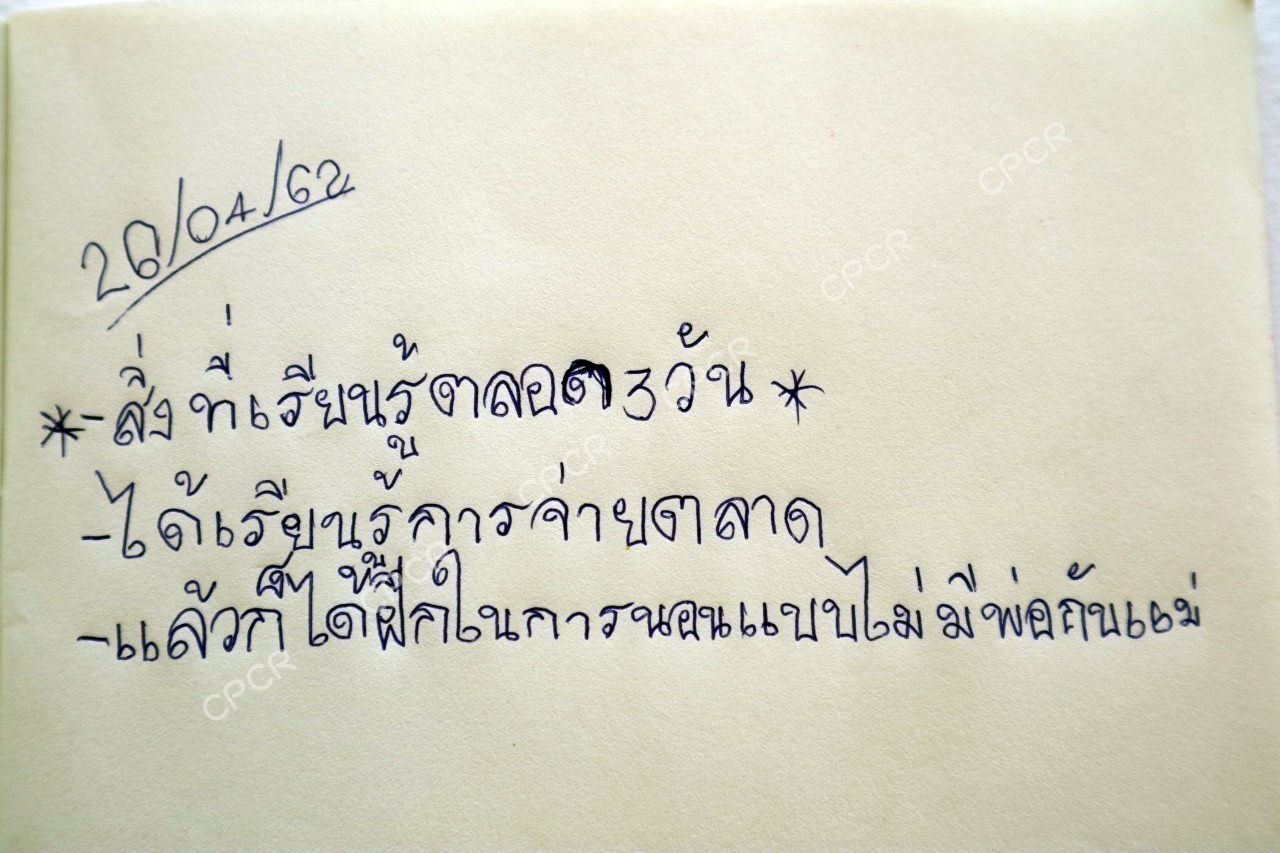 26/04/62
*-สิ่งที่เรียนรู้ตลอด 3 วัน *
-ได้เรียนรู้การจ่ายตลาด
-แล้วก็ได้ฝึกในการนอนแบบไม่มีพ่อกับแม่
CPCR
CPCR
CPCR
CPCR
CPCR
CPCR